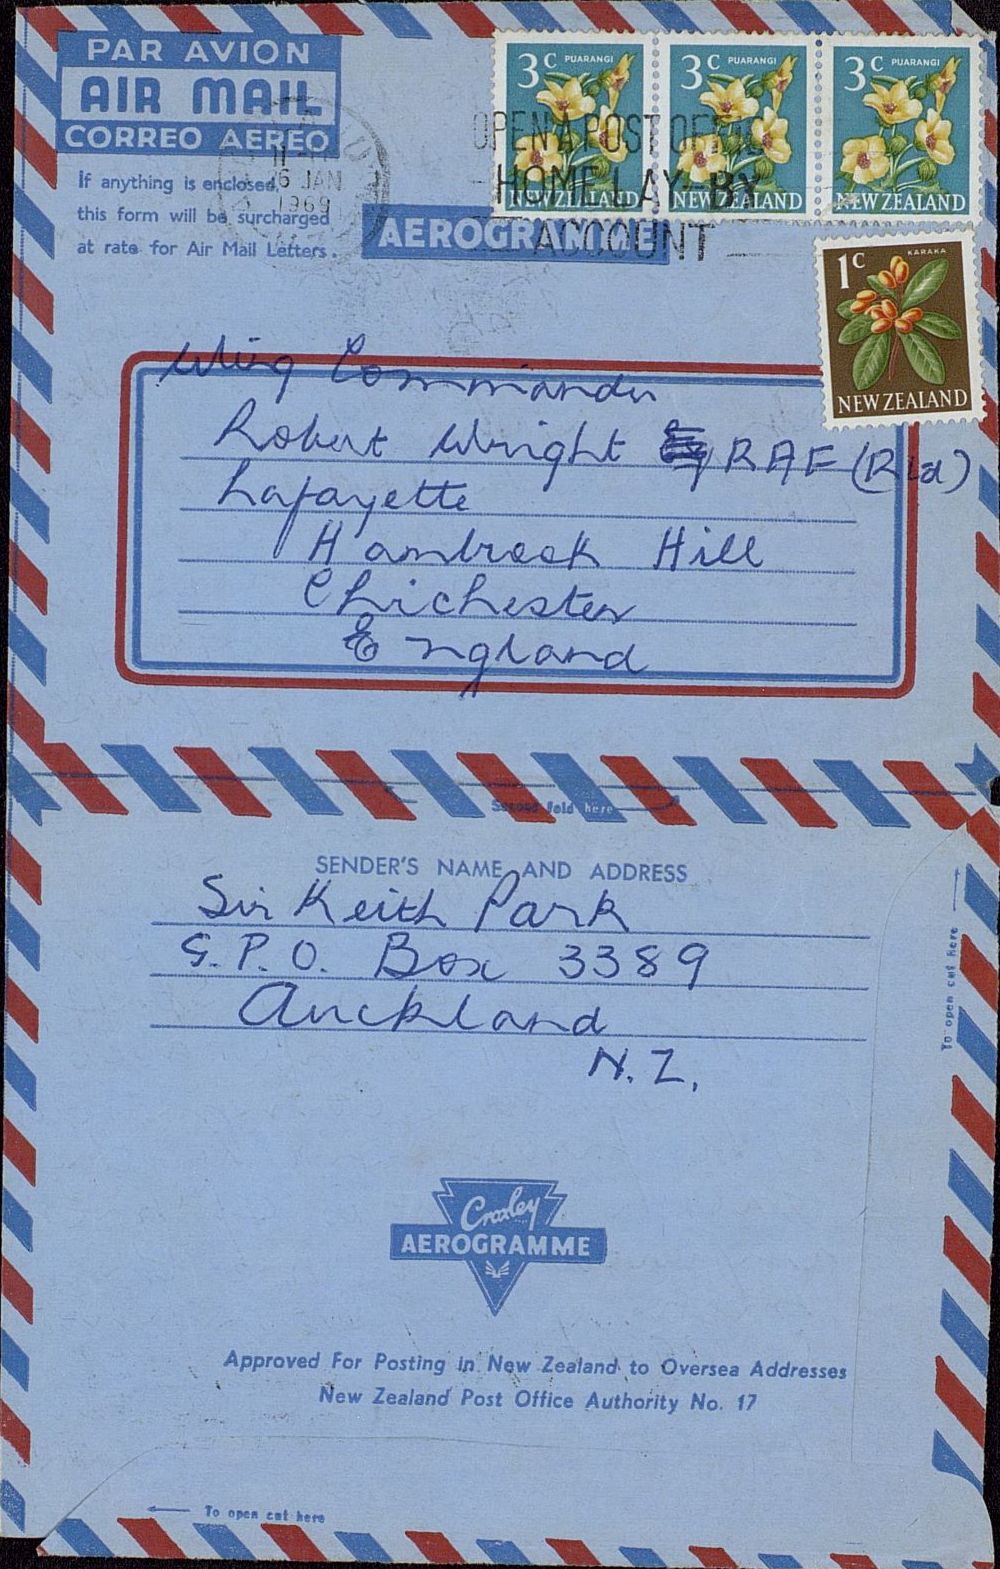 PAR AVION
AIR MAIL
CORREO AEREO
If anything is enclosed
this form will be surcharged
at rate for Air Mail Letters.
6 JAN
1969
3c PUARANGI
NEW ZEALAND
3c PUARANGI
NEW ZEALAND
3c PUARANGI
NEW ZEALAND
OPEN A POST OFFICE
HOME LAY-BY
ACCOUNT
AEROGRAMME
1c KARAKA
NEW ZEALAND
Wing Commander
Robert Wright RAF (Rtd)
Lafayette
Hambrook Hill
Chichester
England
Second fold here
SENDER'S NAME AND ADDRESS
Sir Keith Park
G.P.O. Box 3389
Auckland
N.Z.
To open cut here
Croxley
AEROGRAMME
Approved For Posting in New Zealand to Oversea Addresses
New Zealand Post Office Authority No. 17
To open cut here